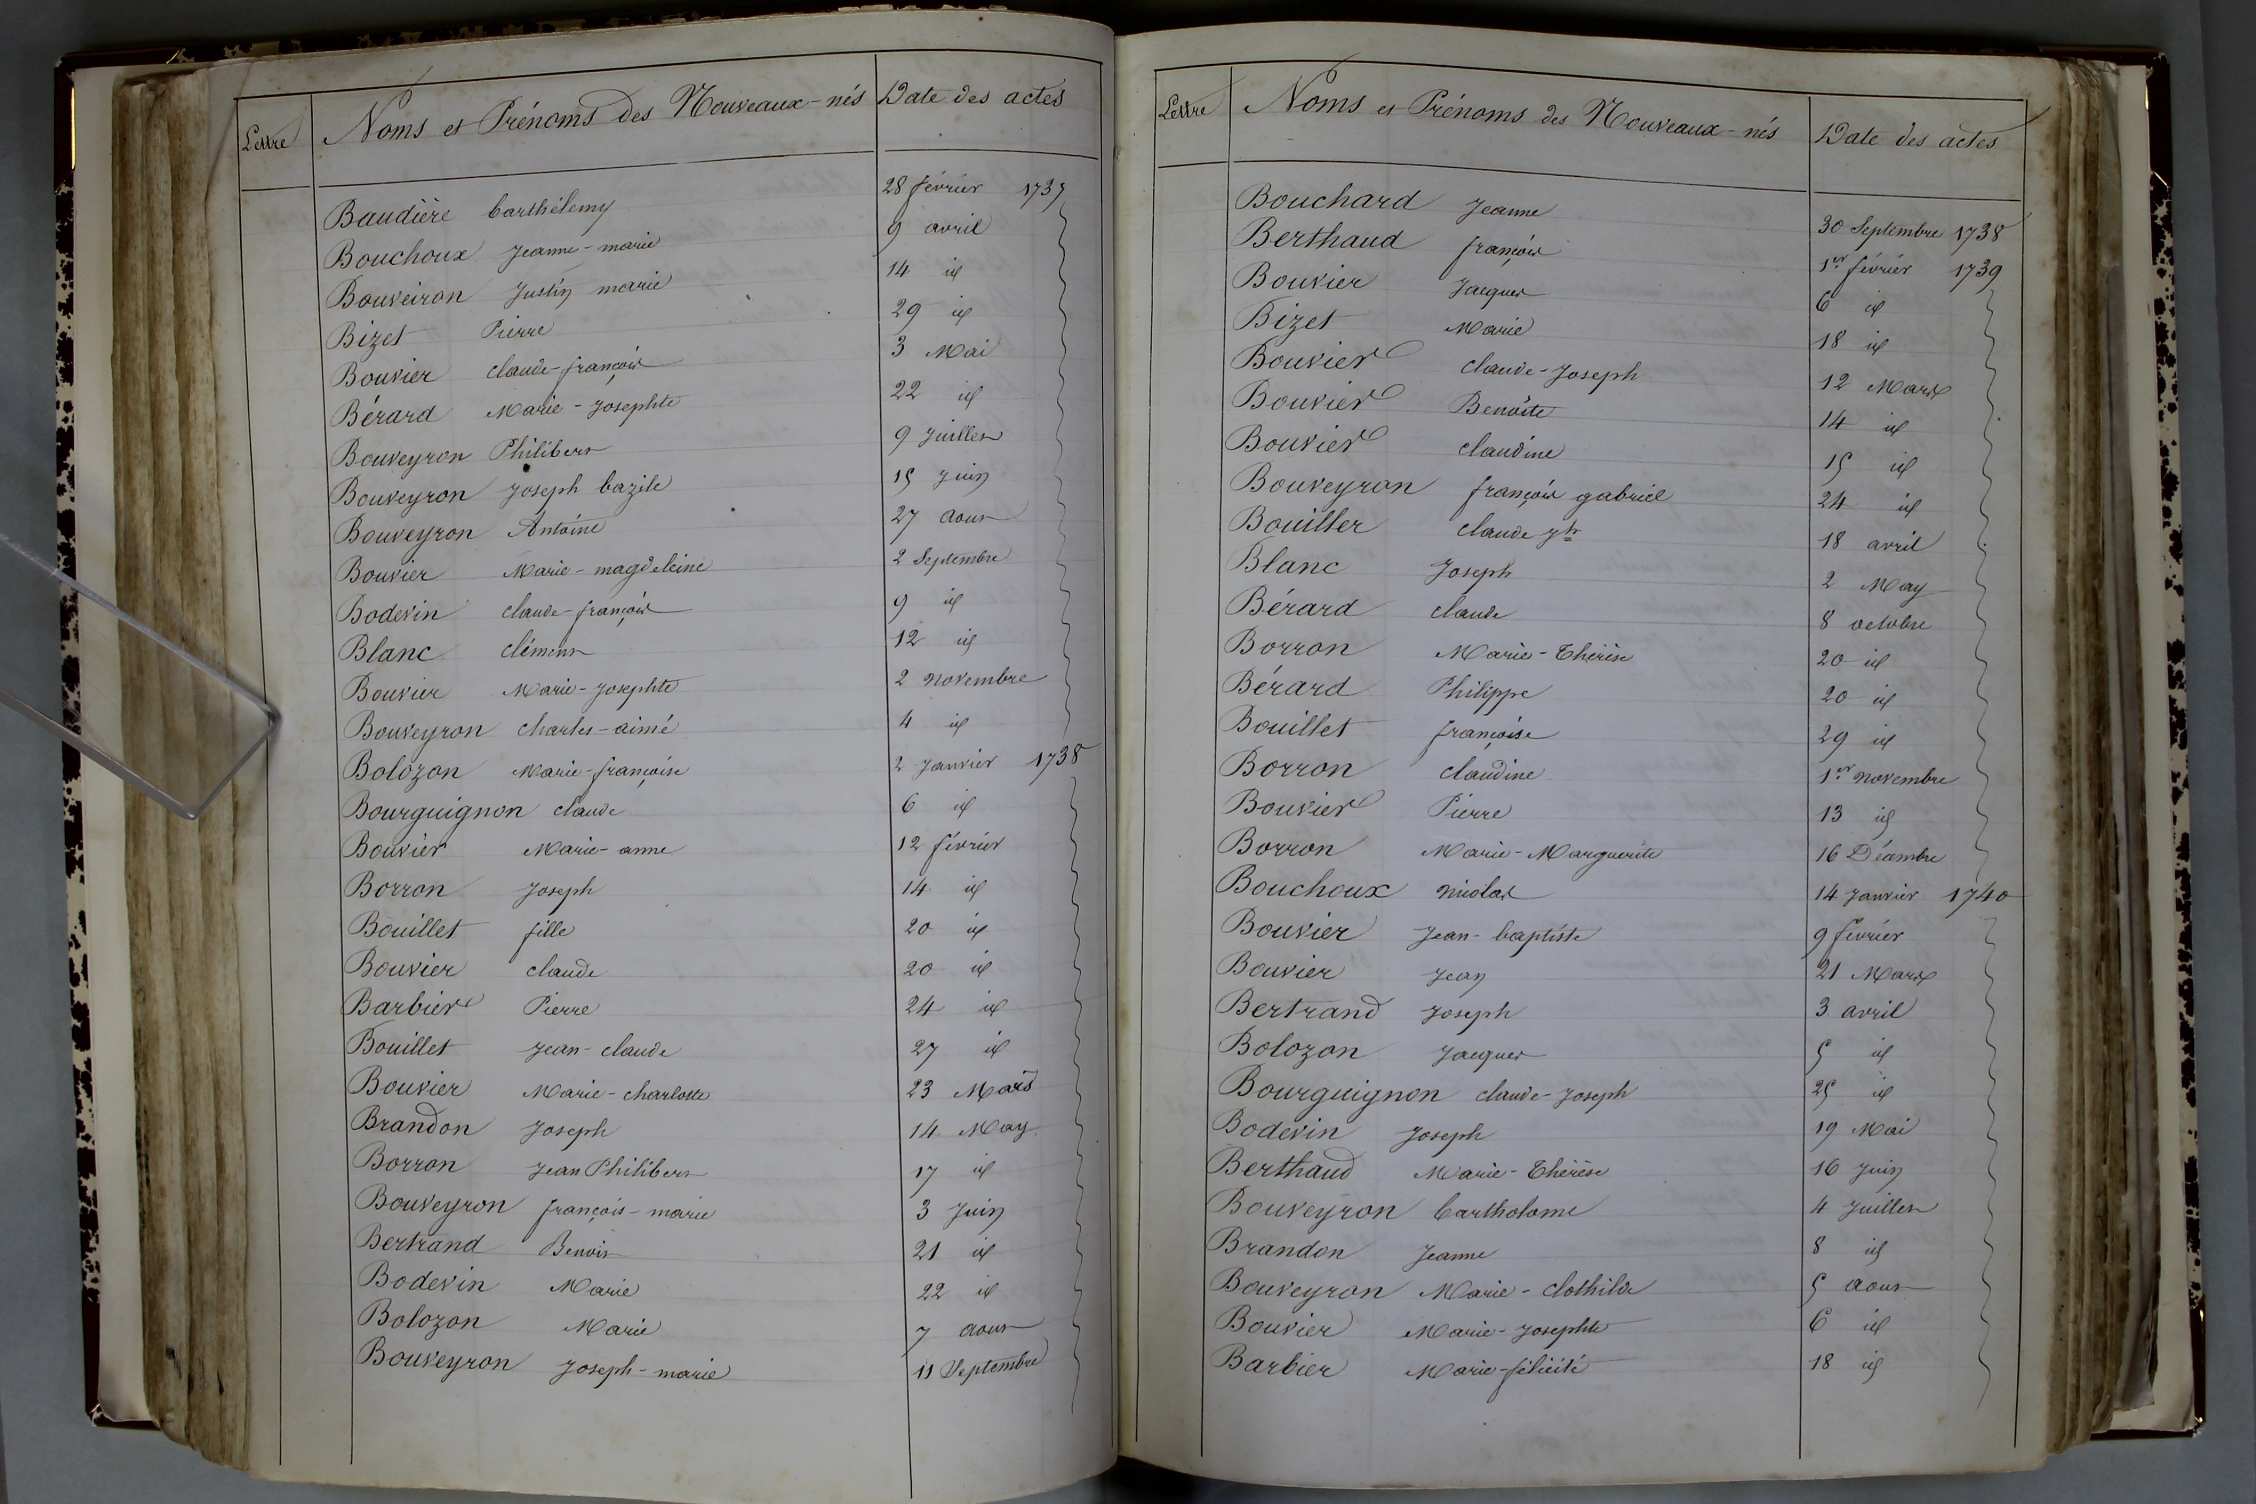 Lettre Noms et Prénoms des Nouveaux-nés Date des actes
Baudière barthélemy 28 février 1737
Bouchoux Jeanne-marie 9 avril
Bouveiron Justin marie 14 id
Bizet Pierre 29 id
Bouvier claude-françois 3 Mai
Bérard Marie-Josephte 22 id
Bouveyron Philibert 9 Juillet
Bouveyron Joseph bazile 15 Juin
Bouveyron Antoine 27 aout
Bouvier Marie-magdeleine 2 Septembre
Bodevin claude-françois 9 id
Blanc clément 12 id
Bouvier Marie-Josephte 2 novembre
Bouveyron charles-aimé 4 id
Bolozon Marie-françoise 2 Janvier 1738
Bourguignon claude 6 id
Bouvier Marie-anne 12 février
Borron Joseph 14 id
Bouillet fille 20 id
Bouvier claude 20 id
Barbier Pierre 24 id
Bouillet Jean-claude 27 id
Bouvier Marie-charlotte 23 Mars
Brandon Joseph 14 May
Borron Jean Philibert 17 id
Bouveyron françois-marie 3 Juin
Bertrand Benoit 21 id
Bodevin Marie 22 id
Bolozon Marie 7 aout
Bouveyron Joseph-marie 11 Septembre
Lettre Noms et Prénoms des Nouveaux-nés Date des actes
Bouchard Jeanne 30 Septembre 1738
Berthaud françois 1er février 1739
Bouvier Jacques 6 id
Bizet Marie 18 id
Bouvier claude-Joseph 12 Mars
Bouvier Benoîte 14 id
Bouvier claudine 15 id
Bouveyron françois gabriel 24 id
Bouiller claude Jh 18 avril
Blanc Joseph 2 May
Bérard claude 8 octobre
Borron Marie-Thérèse 20 id
Bérard Philippe 20 id
Bouillet françoise 29 id
Borron claudine 1er novembre
Bouvier Pierre 13 id
Borron Marie-Marguerite 16 Décembre
Bouchoux nicolas 14 Janvier 1740
Bouvier Jean-baptiste 9 février
Bouvier Jean 21 Mars
Bertrand Joseph 3 avril
Bolozon Jacques 5 id
Bourguignon claude-Joseph 25 id
Bodevin Joseph 19 Mai
Berthaud Marie-Thérèse 16 Juin
Bouveyron bartholome 4 Juillet
Brandon Jeanne 8 id
Bouveyron Marie-clothilde 5 aout
Bouvier Marie-Josephte 6 id
Barbier Marie-félicité 18 id